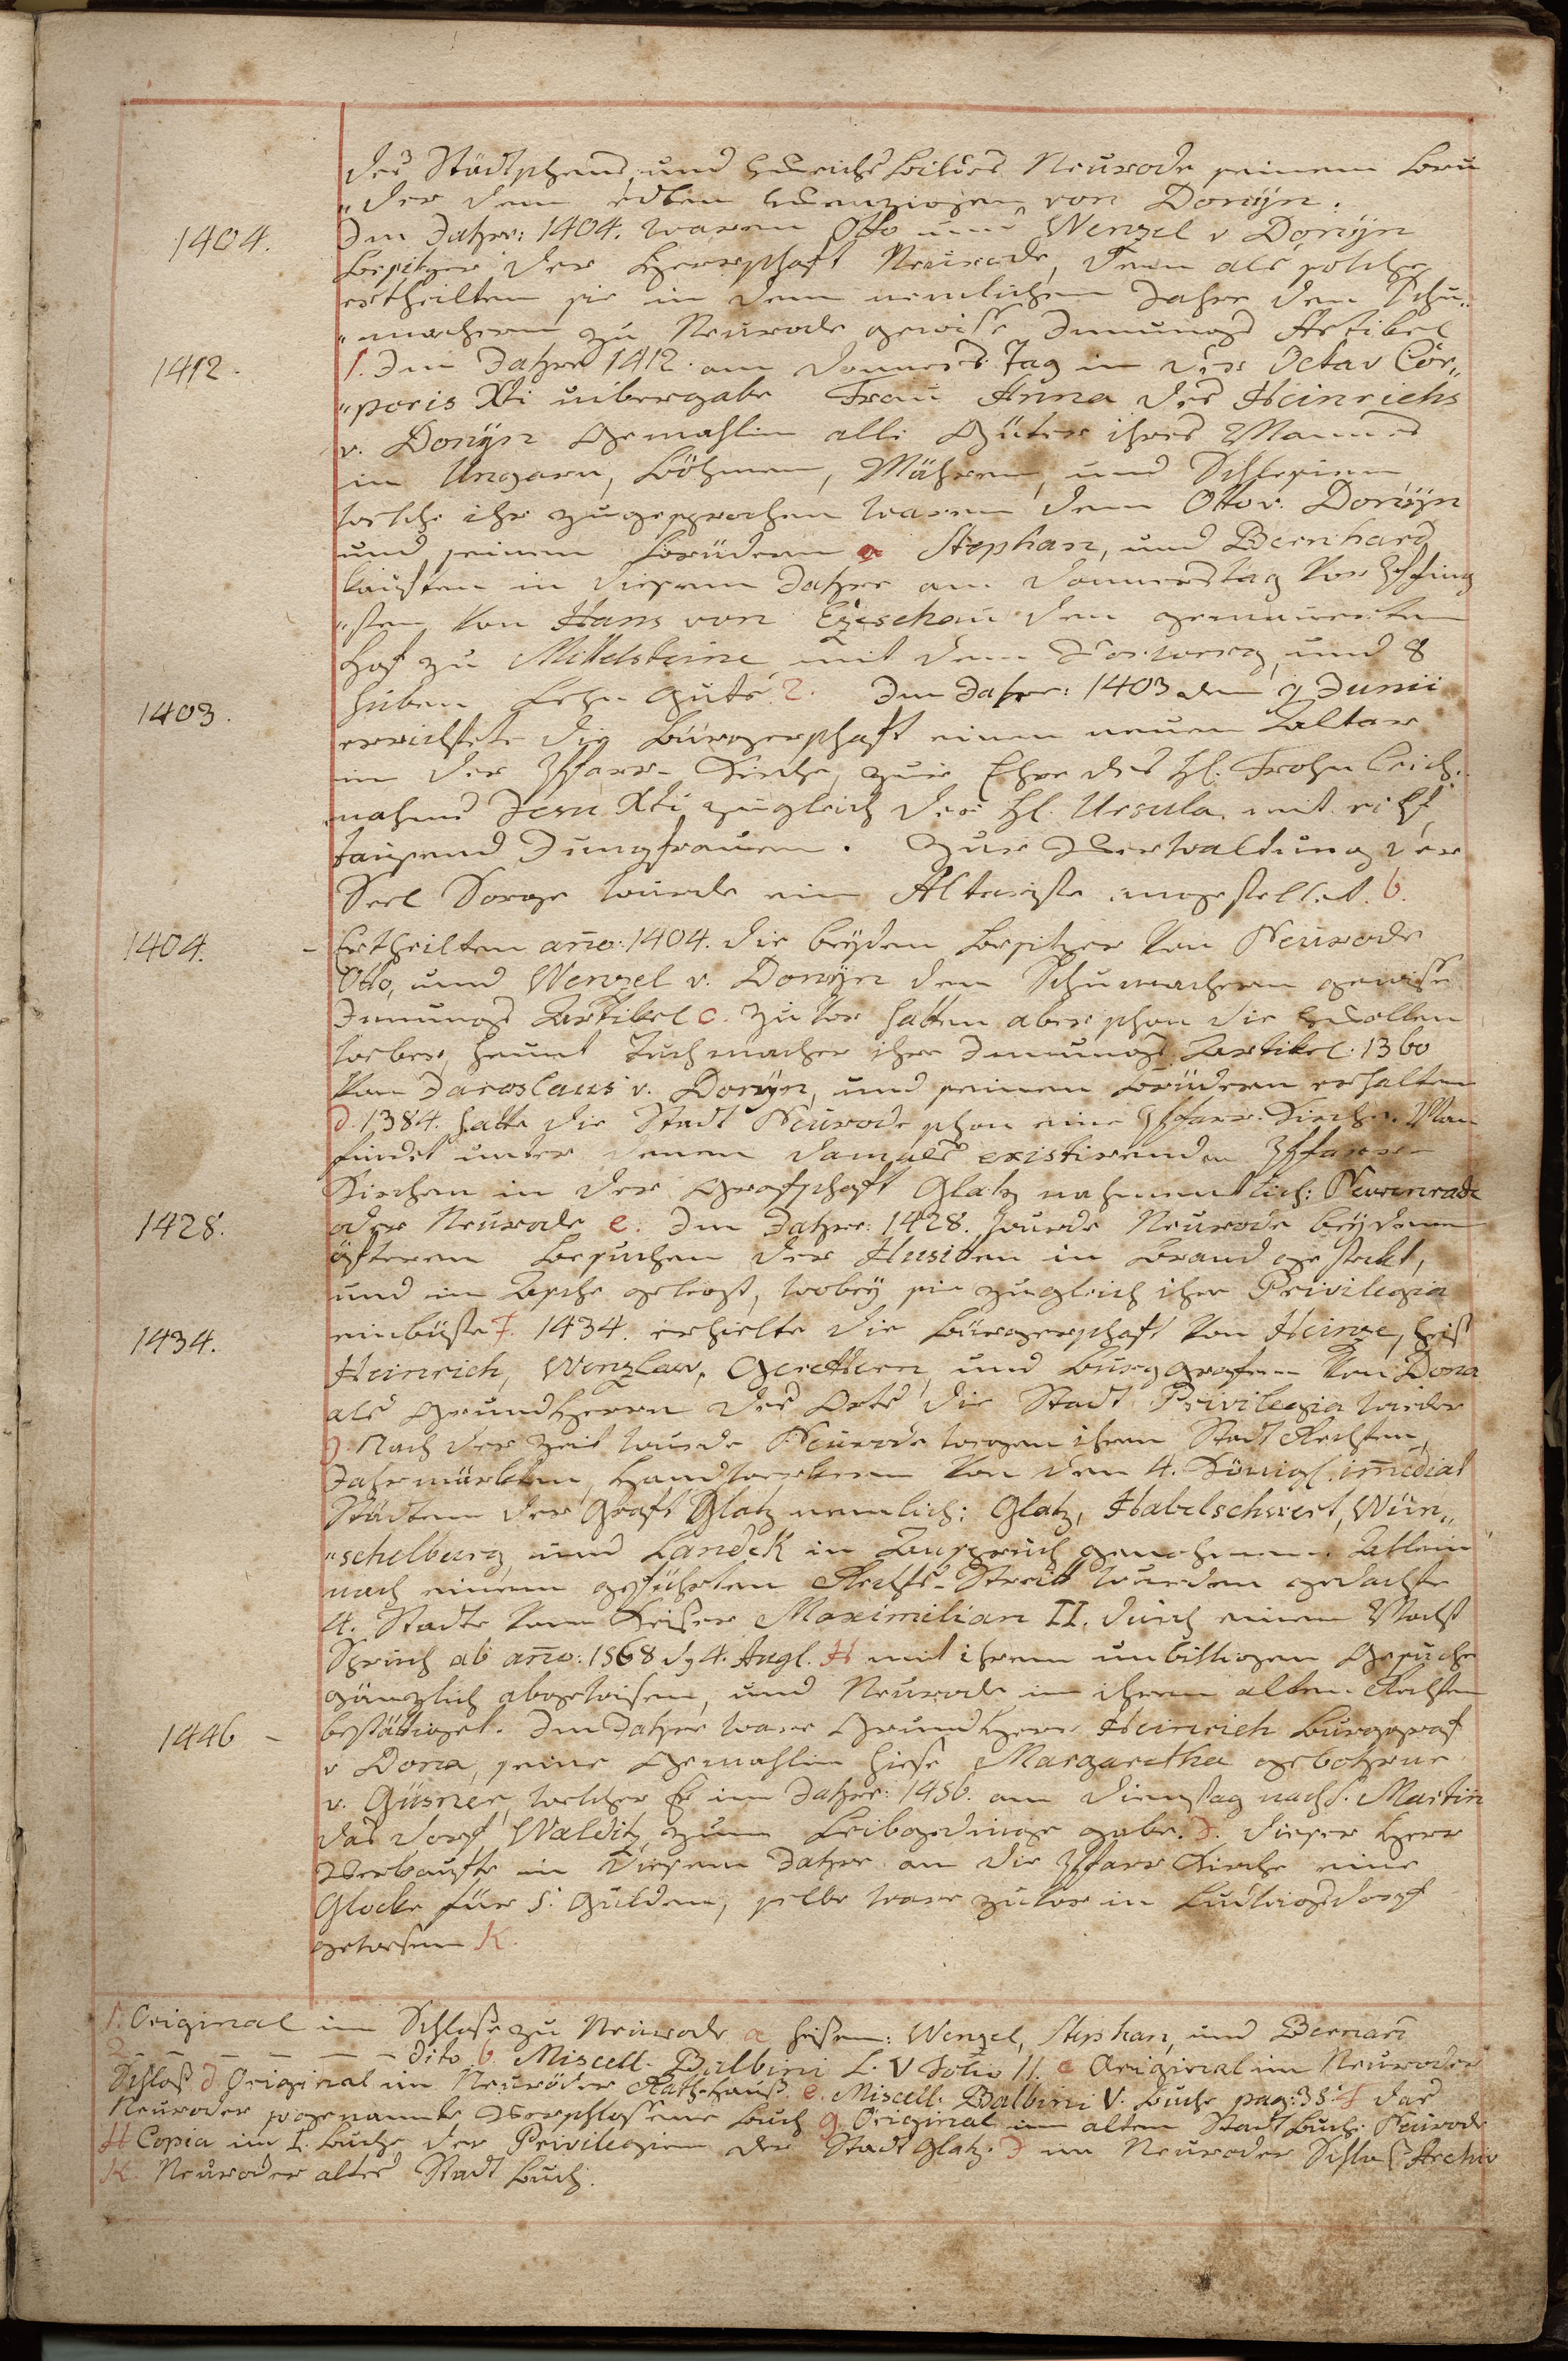 des Städtchens, und Weichs Bildes Neurode seinem bru
„der dem edlen Wenzigen von Donÿn.
1404. Im Jahre: 1404. waren Otto und Wenzel v Donÿn
besitzer der Herrschaft Neurode, denn als solche
ertheilten sie in dem nemlichen Jahre den Schu„
„machern zu Neurode gewisse Innungs Artikel
1412. 1. Im Jahre 1412. am Donners Tag in der Octav Cor„
„poris Xti uibergabe Frau Anna des Heinrichs
v. Donÿn Gemahlin alle Güter ihres Mannes
in Ungarn, Böhmen, Mähren, und Schlesien
welche ihr zugesprochen waren dem Otto v. Donÿn
und seinen brüdern a Stephan, und Bernhard
kauften in diesem Jahre am Donnerstag vor Pfing
„sten von Hans von Czeschau den gemauerten
Hof zu Mittelsteine mit dem Vorwerg, und 8
1403. huben Lehn Guts 2. Im Jahre: 1403 den 9 Junii
errichtete die bürgerschaft einen neuen Altar
in der Pfarr-Kirche, zur Ehre des Hl. Frohn leich„
„nahms Jesu Xti zugleich der Hl. Ursula mit eilf
tausend Jungfrauen. Zur Verwaltung der
Seel Sorge wurde ein Altariste angestellet. b.
1404. – Ertheilten año: 1404. die beÿden besitzer von Neurode
Otto, und Wenzel v. Donÿn den Schumachern gewisse
Innungs Artikel c. zu vor hatten aber schon die Wollen
weber, heunt Tuchmacher ihre Innungs Artikel 1360
von Jaroslaus v. Donÿn, und seinen brüdern erhalten
d. 1384. hatte die Stadt Neurode schon eine Pfarr-Kirche. Man
findet unter denen damals existirenden Pfarr-
Kirchen in der Grafschaft Glatz nahmentlich: Newenrade
1428. oder Neurode e. Im Jahre: 1428. wurde Neurode beÿ denen
öfteren besuchen der Husiten in brand gestekt,
und in Asche gelegt, wobeÿ sie zugleich ihre Privilegia
1434. einbüste f. 1434. erhielte die bürgerschaft von Heinze, heist
Heinrich, Wenzlaw, Gevettern, und burggrafen von Dona
als Grund Herrn des Orts die Stadt Privilegia wieder
g. Nach der Zeit wurde Neurode wegen ihren Stadt Rechten,
Jahrmärkten, Handwerkern von den 4. Königl. im̄ediat
Städten der Graft Glatz nemlich: Glatz, Habelschwert, Wün„
„schelburg, und Landek in Anspruch genohmen. Allein
nach einem geführten Rechts-Streitt wurden gedachte
4. Stadte vom Keiser Maximilian II. durch einen Macht
Spruch ab año: 1568 dg 4. Augl. H mit ihrem unbilligen Gesuche
gänzlich abgewisen, und Neurode in ihren alten Rechten
1446 – bestättiget. Im Jahre ware Grund Herr Heinrich Burggraf
v Dona, seine Gemahlin hiese Margaretha gebohrne
v. Güsner, welcher Er im Jahre: 1456. am Dienstag nach S. Martin
das Dorf Walditz zum Leibgedinge gabe. J. Dieser Herr
Verkaufte in diesem Jahre an die Pfarr Kirche eine
Glocke für 5. Gulden, selbe ware zuvor in Ludwigsdorf
gewesen K.
1. Original im Schlosse zu Neurode a heisen: Wenzel, Stephan, und Bernarñ
2. — — — — — dito b. Miscell. Balbini L. V Folio 11. c Original im Neuroder
Schloß d Original im Neuröder Rathhauß e. Miscell: Balbini V. Buche pag: 35. f das
Neuroder sogenannte Verschlossene buch g Original im alten Stadt buch: Neurode
H Copia im I. buche der Privilegien der Stadt Glatz. J im Neuroder Schloß Archiv
K. Neuroder altes Stadt buch.